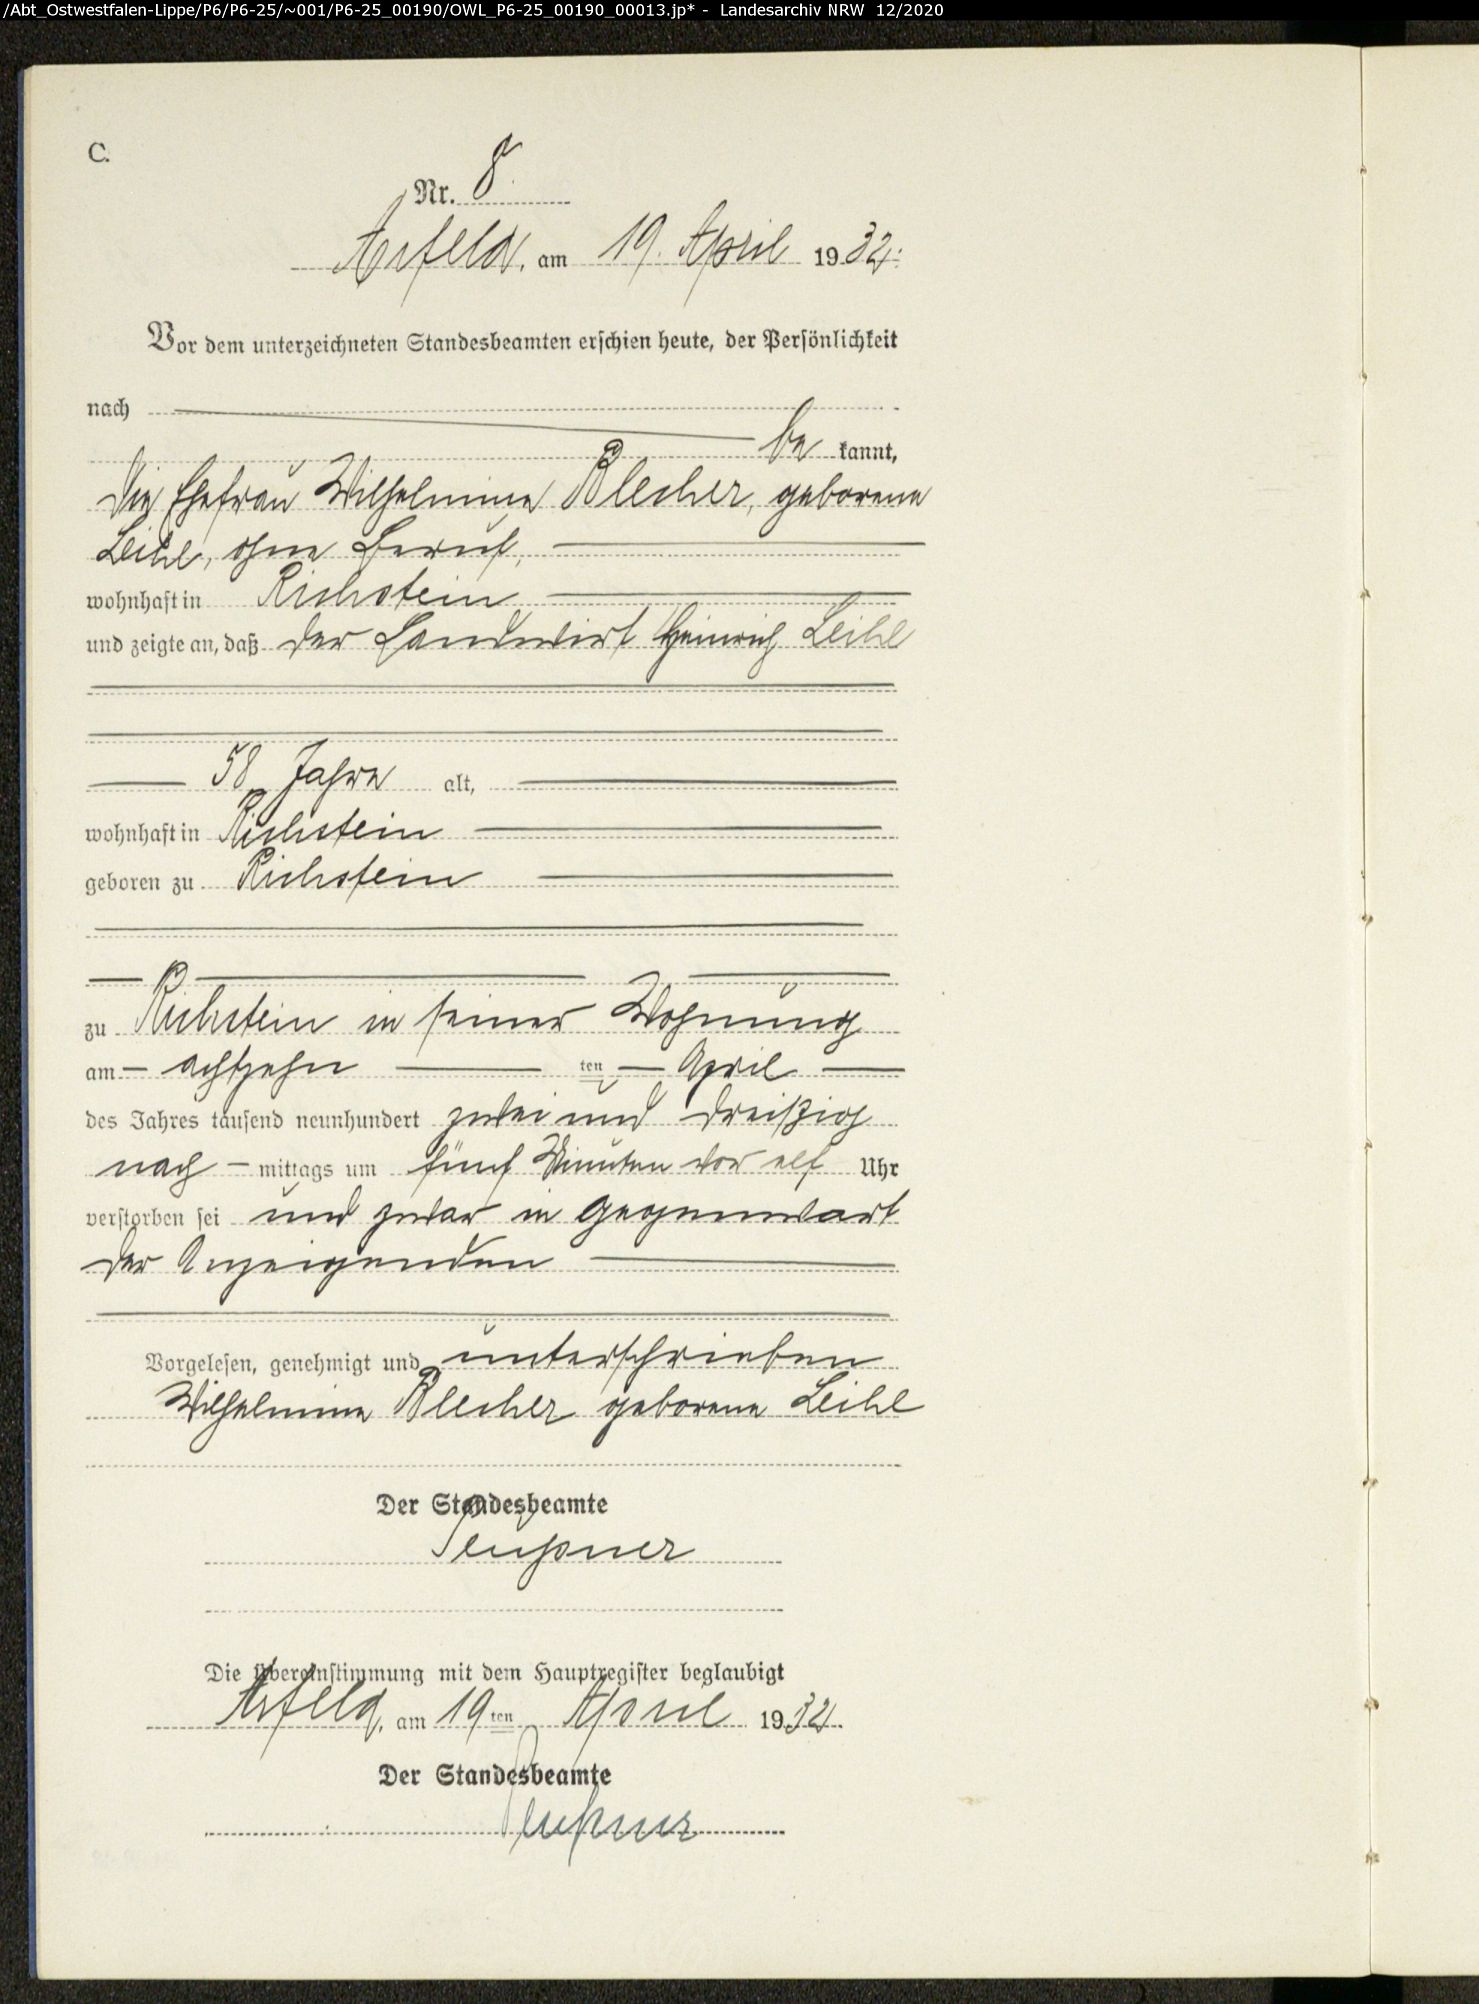 /Abt_Ostwestfalen-Lippe/P6/P6-25/~001/P6-25_00190/OWL_P6-25_00190_00013.jp* - Landesarchiv NRW 12/2020
C.
Nr. 8
Arfeld, am 19. April 1932.
Vor dem unterzeichneten Standesbeamten erschien heute, der Persönlichkeit
nach
be kannt,
die Ehefrau Wilhelmine Blecher, geborene
Leihl, ohne Beruf,
wohnhaft in Richstein
und zeigte an, daß der Landwirt Heinrich Leihl
58 Jahre alt,
wohnhaft in Richstein
geboren zu Richstein
zu Richstein in seiner Wohnung
am achtzehn ten April
des Jahres tausend neunhundert zwei und dreißig
nach mittags um fünf Minuten vor elf Uhr
verstorben sei und zwar in Gegenwart
der Anzeigenden
Vorgelesen, genehmigt und unterschrieben
Wilhelmine Blecher geborene Leihl
Der Standesbeamte
Die Übereinstimmung mit dem Hauptregister beglaubigt
Arfeld, am 19ten April 1932.
Der Standesbeamte